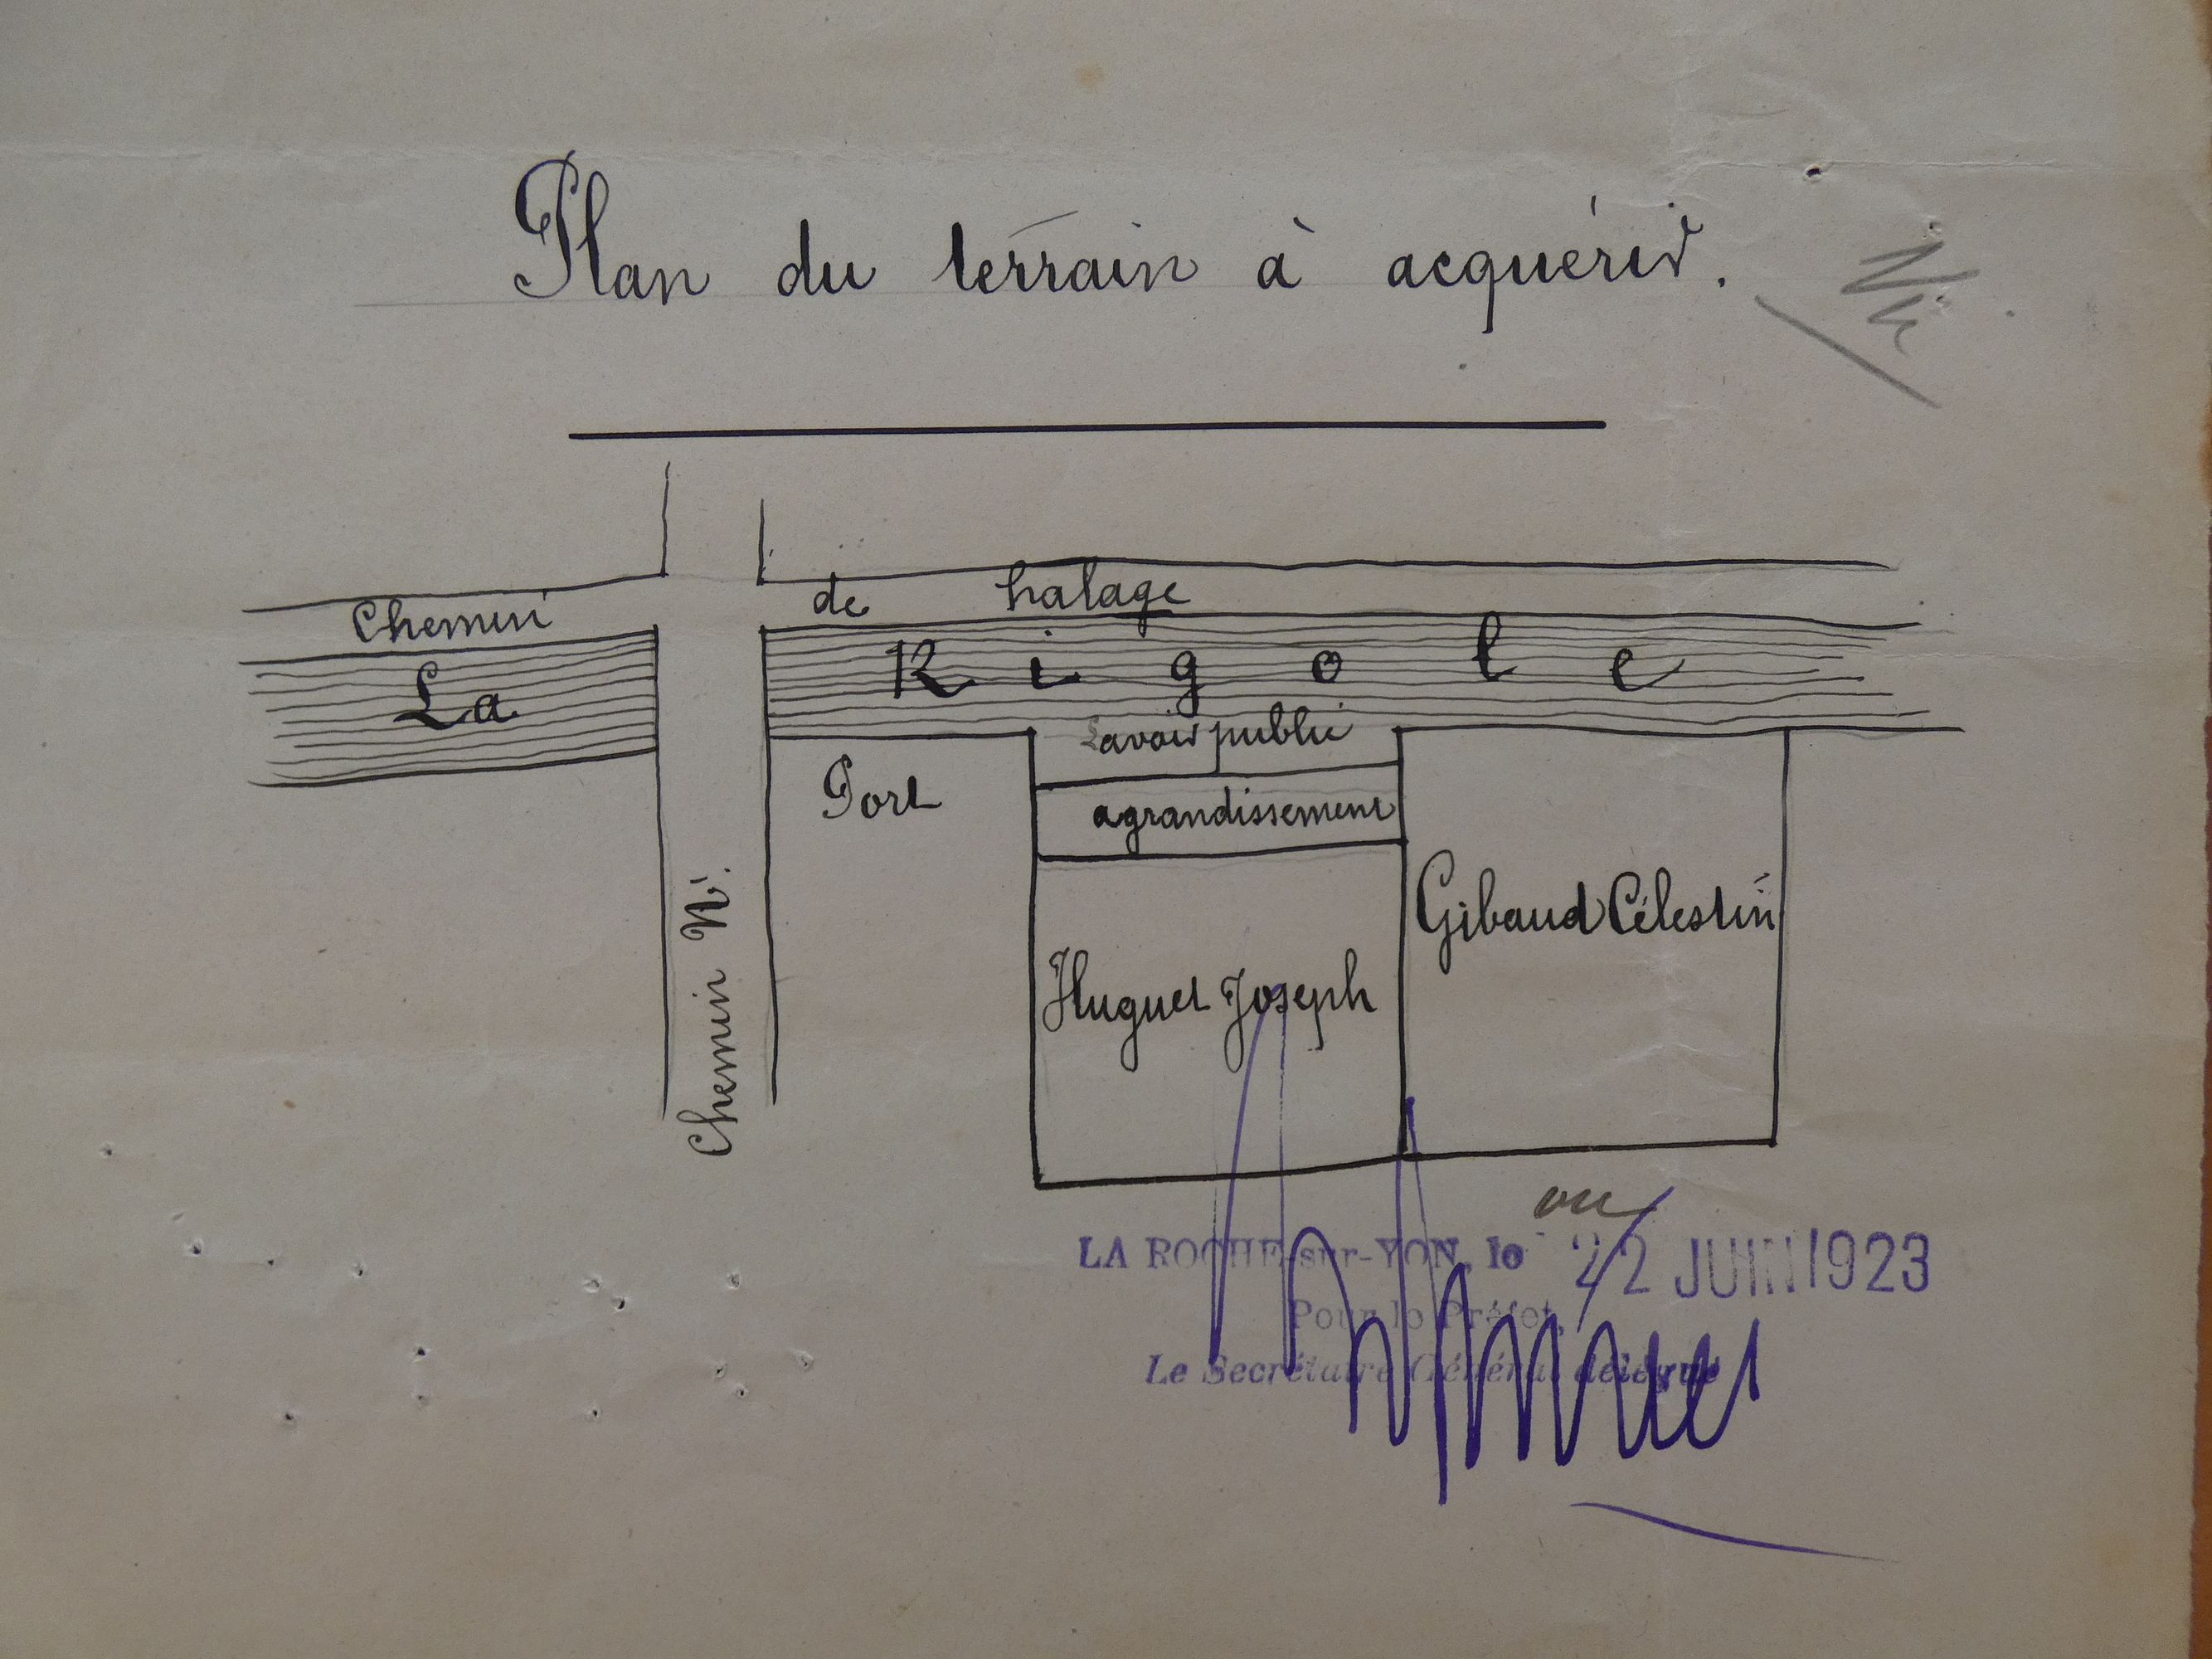 Plan du terrain à acquérir.
Vu
Chemin de halage
La Rigole
Lavoir public
Port
agrandissement
Gibaud Célestin
Huguet Joseph
Chemin N.
LA ROCHE-sur-YON, le 22 JUIN 1923
Pour le Préfet,
Le Secrétaire Général délégué